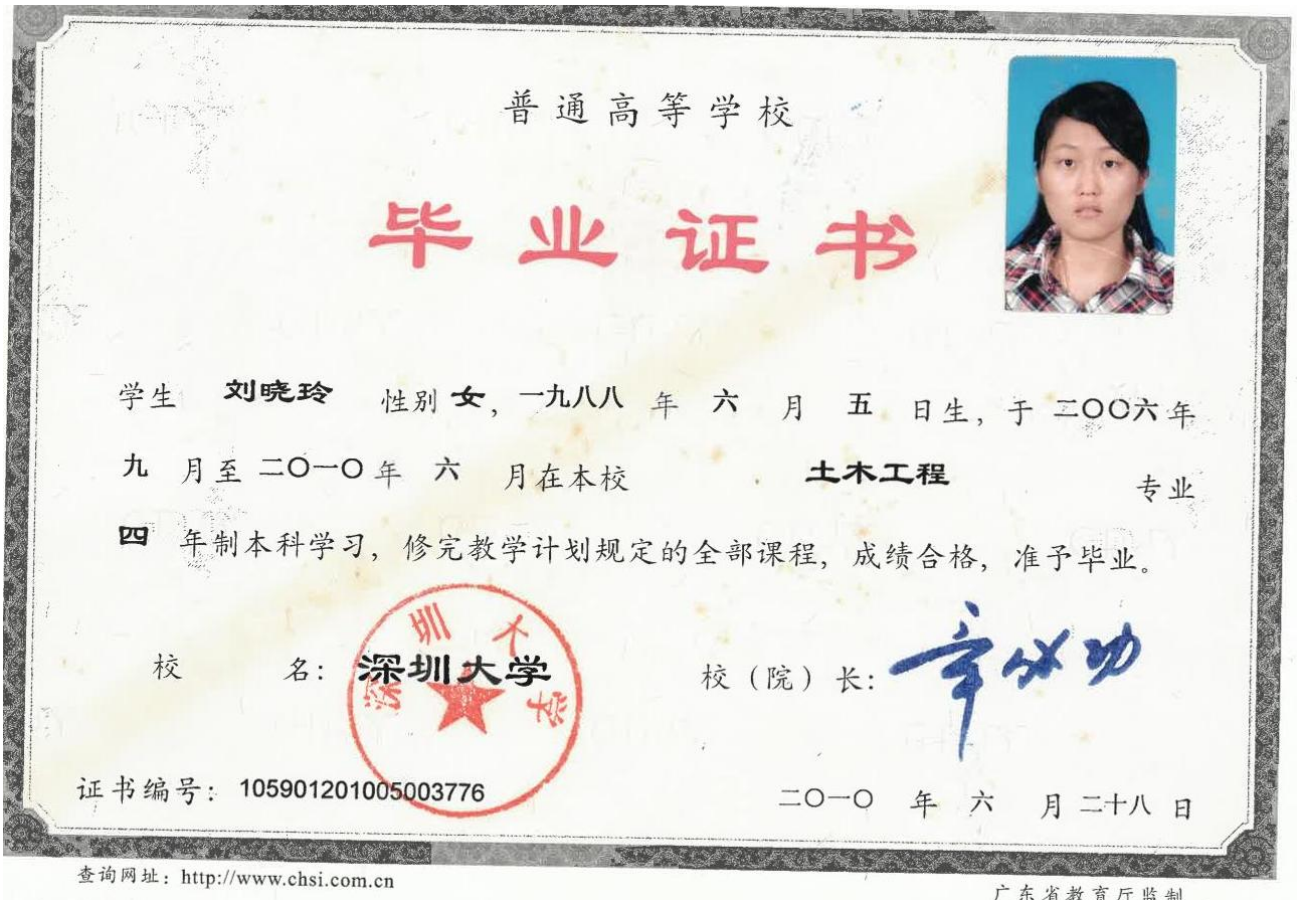 普通高等学校
毕业证书
学生 刘晓玲 性别 女，一九八八 年 六 月 五 日生，于 二〇〇六年
九 月至 二〇一〇 年 六 月在本校 土木工程 专业
四 年制本科学习，修完教学计划规定的全部课程，成绩合格，准予毕业。
深圳大学
校 名：深圳大学 校（院）长：章必功
证书编号：105901201005003776 二〇一〇 年 六 月 二十八 日
查询网址：http://www.chsi.com.cn
广东省教育厅监制